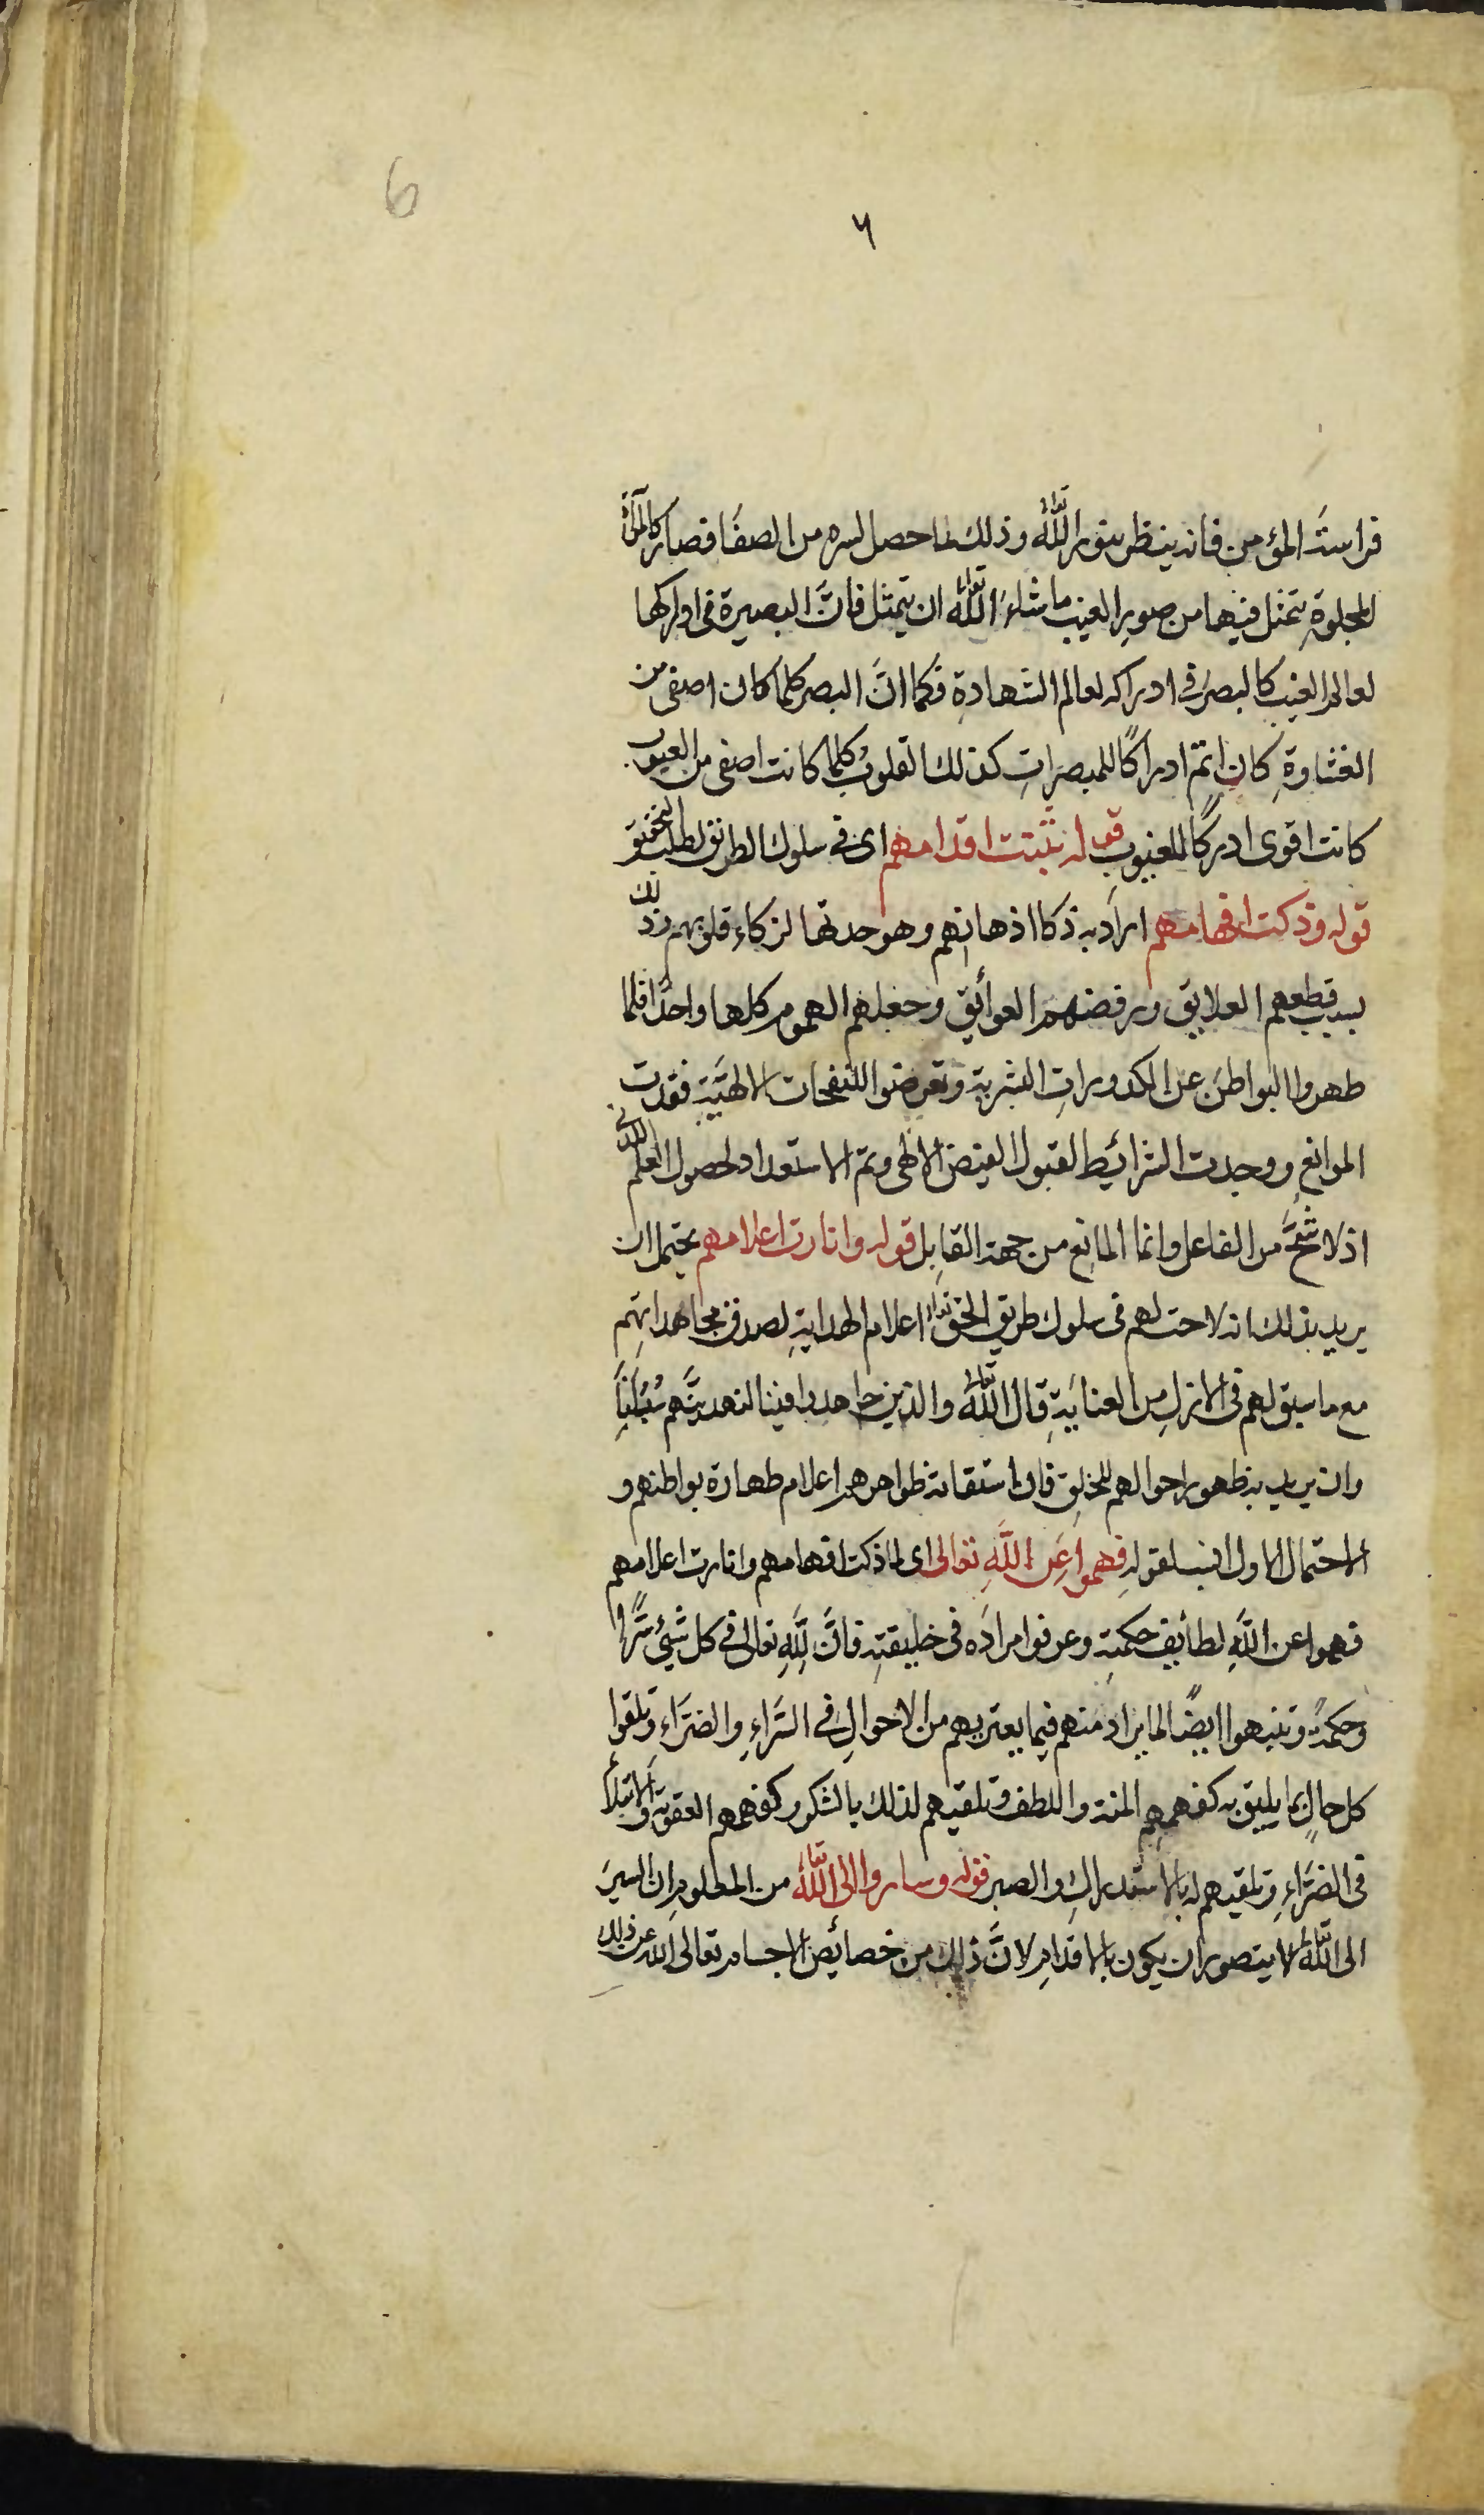 6
٦
فراسة المؤمن فانه ينظر بنور الله تعالى وذلك لما حصل لسره من الصفا فصار كالمرآة
المجلوة يتمثل فيها من صور الغيب ما شاء الله تعالى ان يتمثل فان البصيرة في ادراكها
لعالم الغيب كالبصر في ادراكه لعالم الشهادة فكما ان البصر كلما كان اصفى من
الغشاوة كان اتم ادراكا للمبصرات كذلك القلوب كلما كانت اصفى من العيوب
كانت اقوى ادراكا للغيوب قوله ثبتت اقدامهم اى في سلوك الطريق لطلب التحقيق
قوله وذكت افهامهم اراد به ذكا اذهانهم وهو حدتها لزكاء قلوبهم وذلك
بسبب قطعهم العلايق ورفضهم العوائق وجعلهم الهموم كلها واحدا فلما
طهروا البواطن عن الكدورات البشرية وتعرضوا للنفحات الالهية فقدت
الموانع ووجدت الشرائط لقبول الفيض الالهى وتم الاستعداد لحصول العلم اللدنى
اذ لا شح من الفاعل وانما المانع من جهة القابل قوله وانارت اعلامهم يحتمل ان
يريد بذلك انه لاحت لهم في سلوك طريق الحق تعالى اعلام الهداية لصدق مجاهداتهم
مع ما سبق لهم في الازل من العناية قال الله تعالى والذين جاهدوا فينا لنهدينهم سبلنا
وان يريد به ظهور احوالهم للخلق فان استقامة ظواهرهم اعلام طهارة بواطنهم و
الاحتمال الاول انسب لقوله فهموا عن الله تعالى اى لما ذكت افهامهم وانارت اعلامهم
فهموا عن الله لطائف حكمته وعرفوا مراده في خليقته فان لله تعالى في كل شيئ سرا
وحكمة وتنبهوا ايضا لما يراد منهم فيما يعتريهم من الاحوال في السراء والضراء وتلقوا
كل حال بما يليق به كفهمهم المنة واللطف وتلقيهم لذلك بالشكر وكفهمهم العقوبة والابتلاء
في الضراء وتلقيهم له بالاستدراك والصبر قوله وساروا الى الله تعالى من المعلوم ان السير
الى الله تعالى لا يتصور ان يكون بالاقدام لان ذلك من خصائص الاجسام تعالى الله عن ذلك